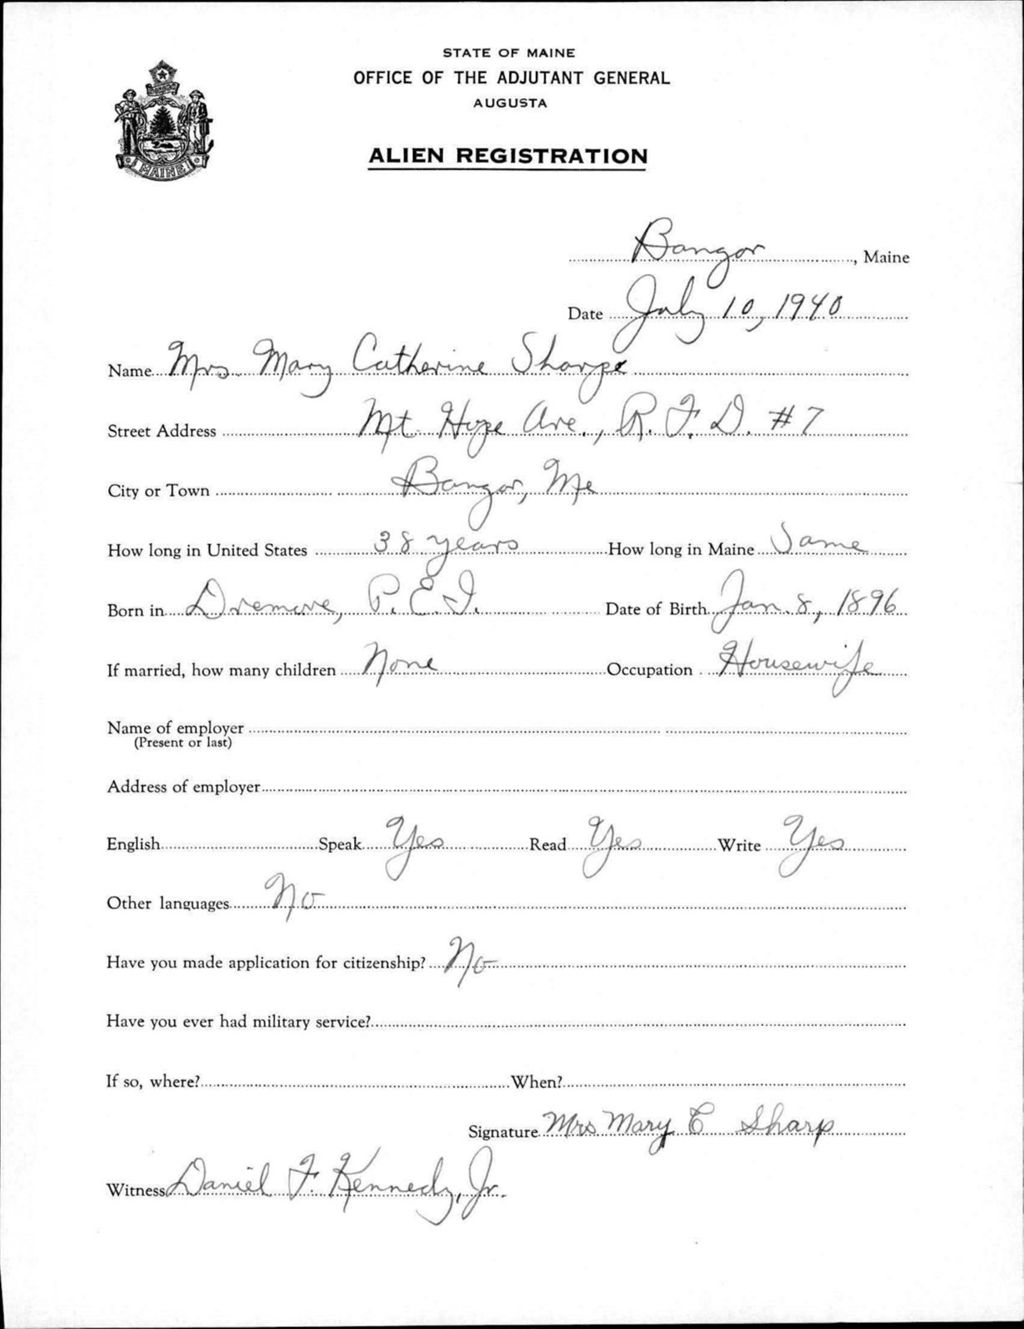 STATE OF MAINE
OFFICE OF THE ADJUTANT GENERAL
AUGUSTA
ALIEN REGISTRATION
MAINE
Bangor, Maine
Date July 10, 1940
Name Mrs. Mary Catherine Sharpe
Street Address Mt Hope Ave., R.F.D. #7
City or Town Bangor, Me
How long in United States 38 years How long in Maine Same
Born in Dromore, P.E.I. Date of Birth Jan. 8, 1896
If married, how many children None Occupation Housewife
Name of employer
(Present or last)
Address of employer
English Speak Yes Read Yes Write Yes
Other languages No
Have you made application for citizenship? No
Have you ever had military service?
If so, where? When?
Signature Mrs Mary C Sharp
Witness Daniel F. Kennedy, Jr.